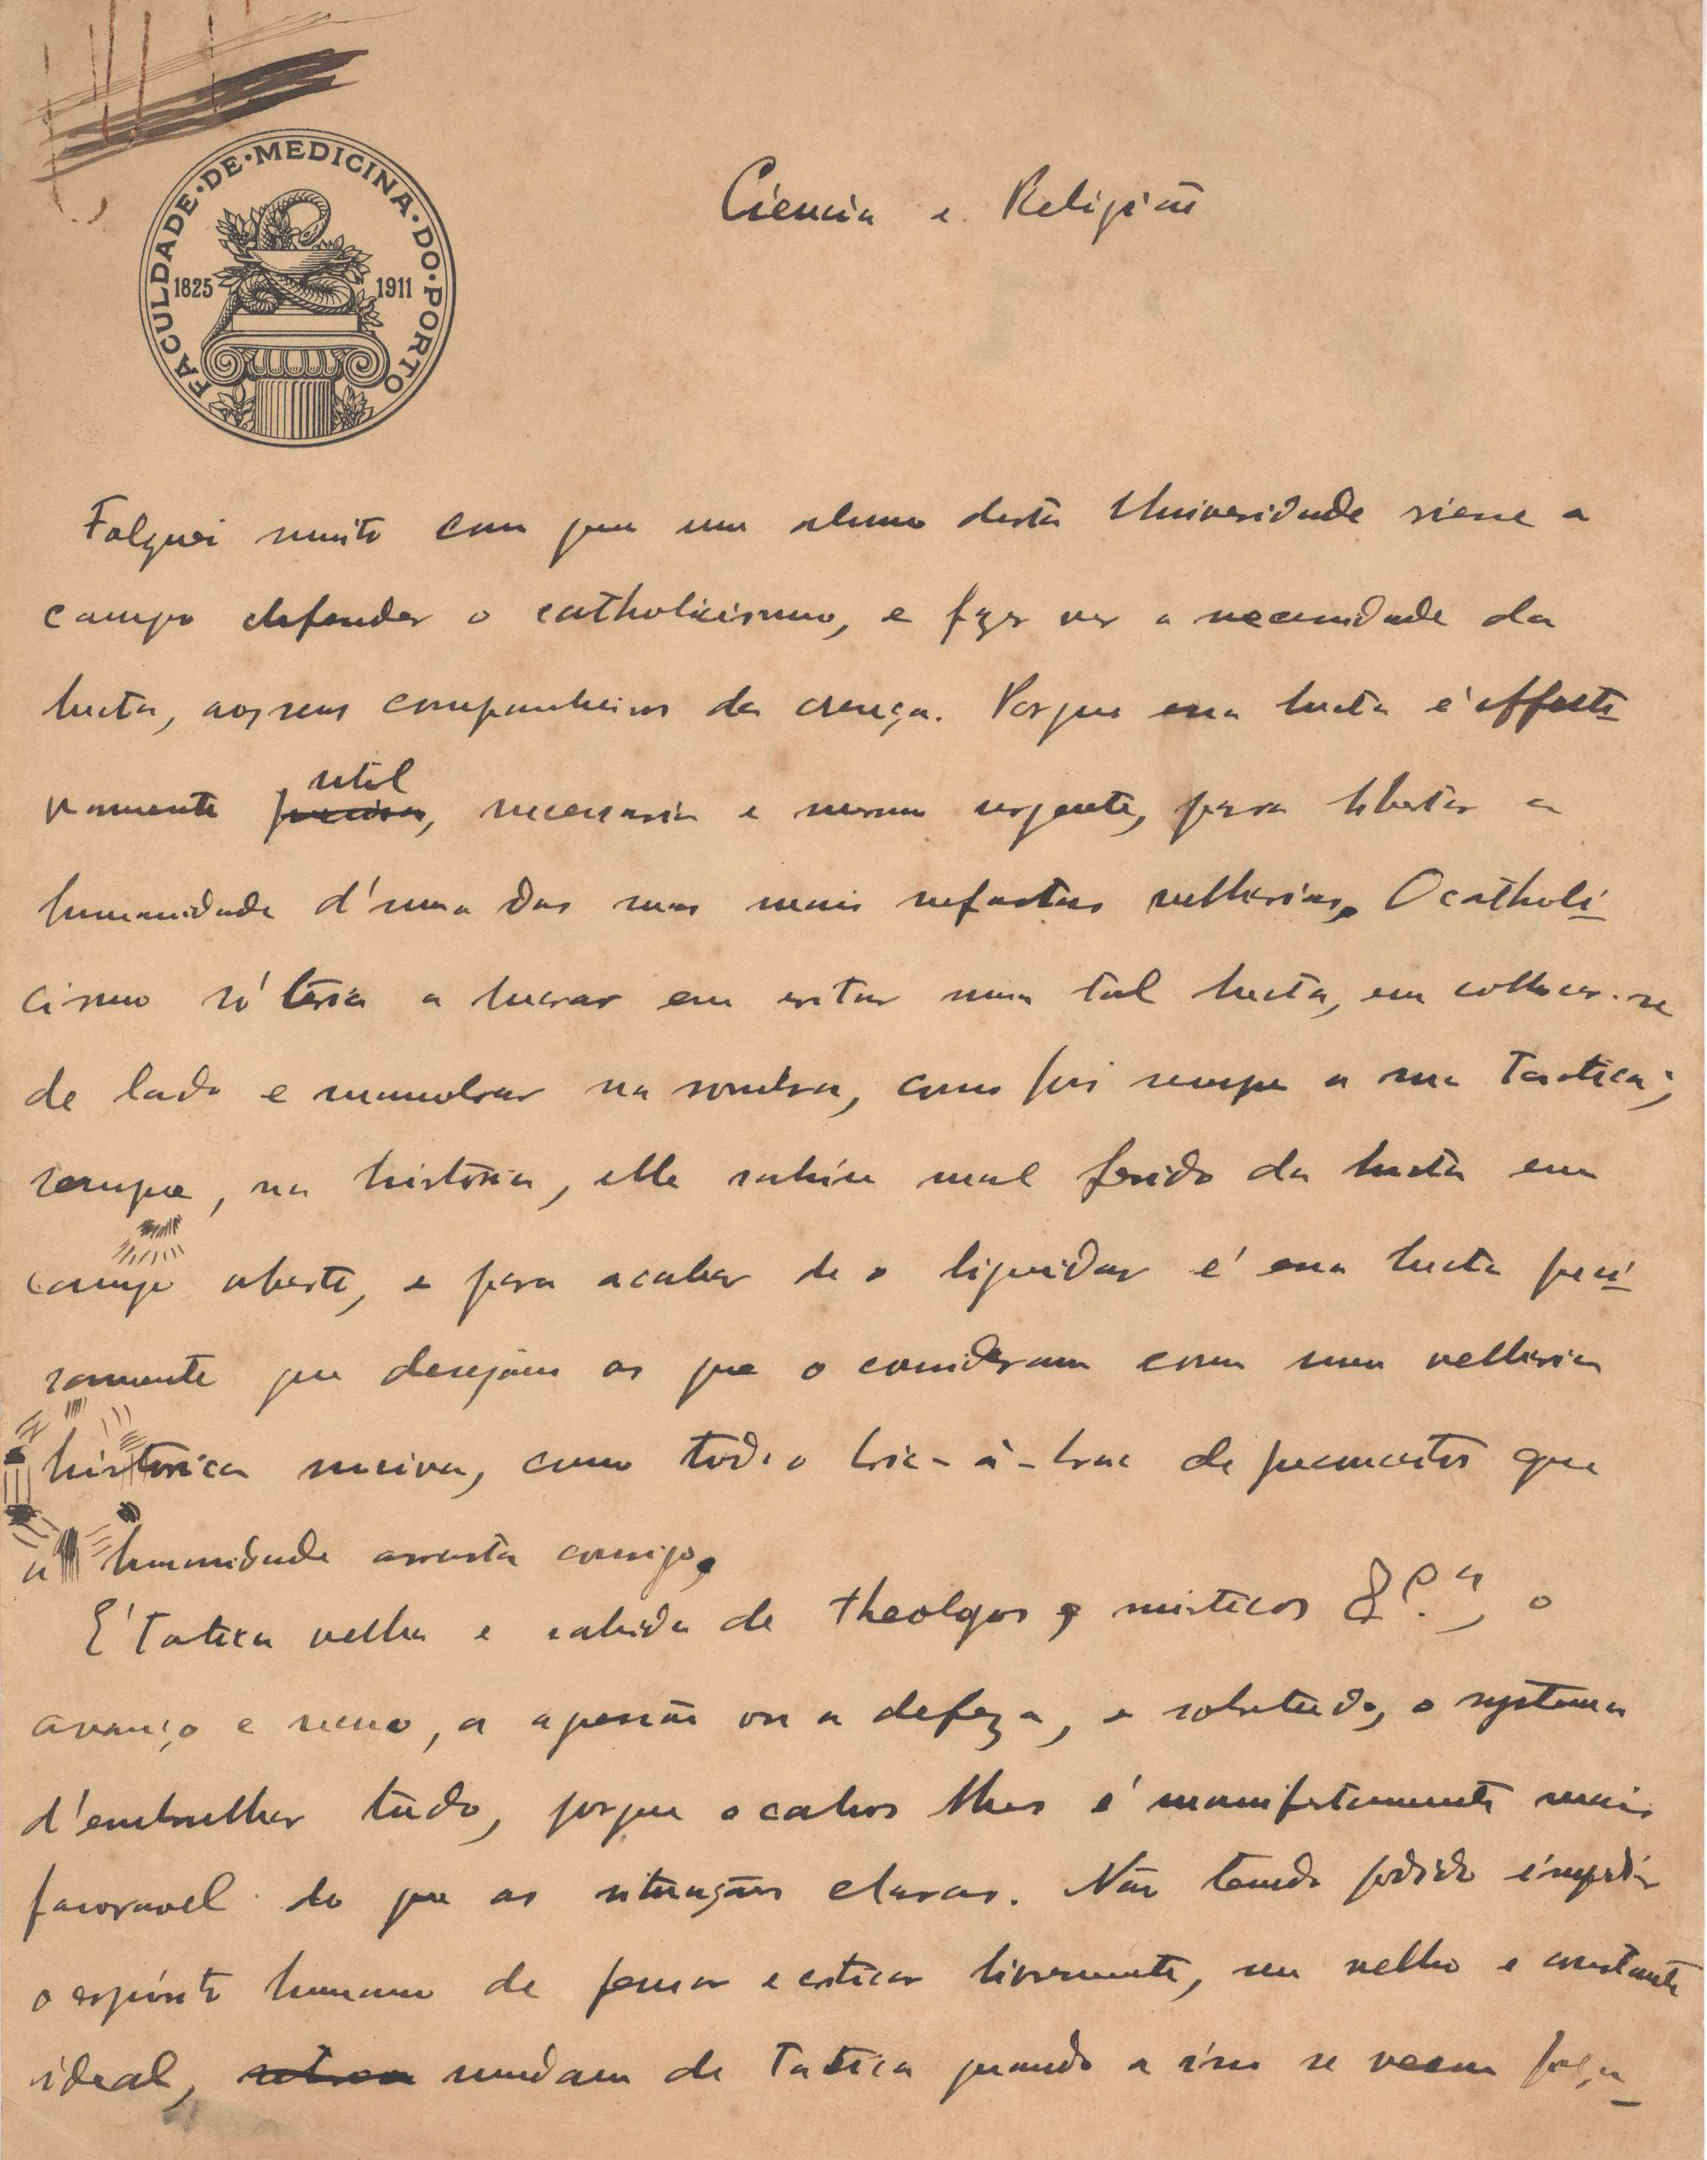 FACULDADE·DE·MEDICINA·DO·PORTO
1825 1911
Ciencia e Religião
Folguei muito com que um alumno desta Universidade viesse a
campo defender o catholicismo, e fazer ver a necessidade da
lucta, aos seus companheiros da crença. Porque essa lucta é effecti-
vamente precisa, util necessaria e mesmo urgente, para libertar a
humanidade d'uma das suas mais nefastas velharias. O catholi-
cismo só teria a lucrar em evitar uma tal lucta, em collocar-se
de lado e manobrar na sombra, como foi sempre a sua tactica;
sempre, na historia, elle sahiu mal ferido da lucta em
campo aberto, e para acabar de o liquidar é essa lucta preci-
samente que desejam os que o consideram como uma velharia
historica nociva, como todo o bric-à-brac de preconceitos que
a humanidade arrasta comsigo.
É tatica velha e sabida de theologos e misticos &c.ª, o
avanço e recuo, a agressão ou a defeza, e sobretudo, o systema
d'embrulhar tudo, porque o cahos lhes é manifestamente mais
favoravel do que as situações claras. Não tendo podido impedir
o espirito humano de pensar e criticar livremente, seu velho e constante
ideal, mudam de tatica quando a isso se veem força-